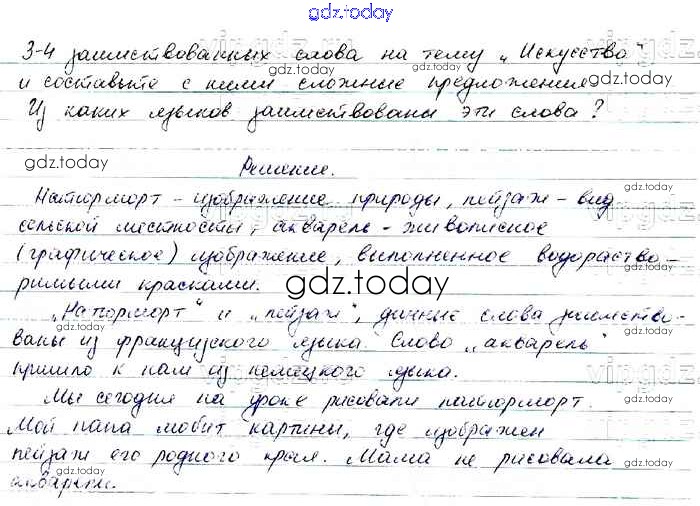 gdz.today
3-4 заимствованных слова на тему „Искусство"
и составьте с ними сложные предложения.
Из каких языков заимствованы эти слова?
Решение.
Натюрморт - изображение природы, пейзаж - вид
сельской местности, акварель - живописное
(графическое) изображение, выполненное водораство-
римыми красками.
„Натюрморт" и „пейзаж", данные слова заимство-
ваны из французского языка. Слово „акварель"
пришло к нам из немецкого языка.
Мы сегодня на уроке рисовали натюрморт.
Мой папа любит картины, где изображен
пейзаж его родного края. Мама не рисовала
акварели.